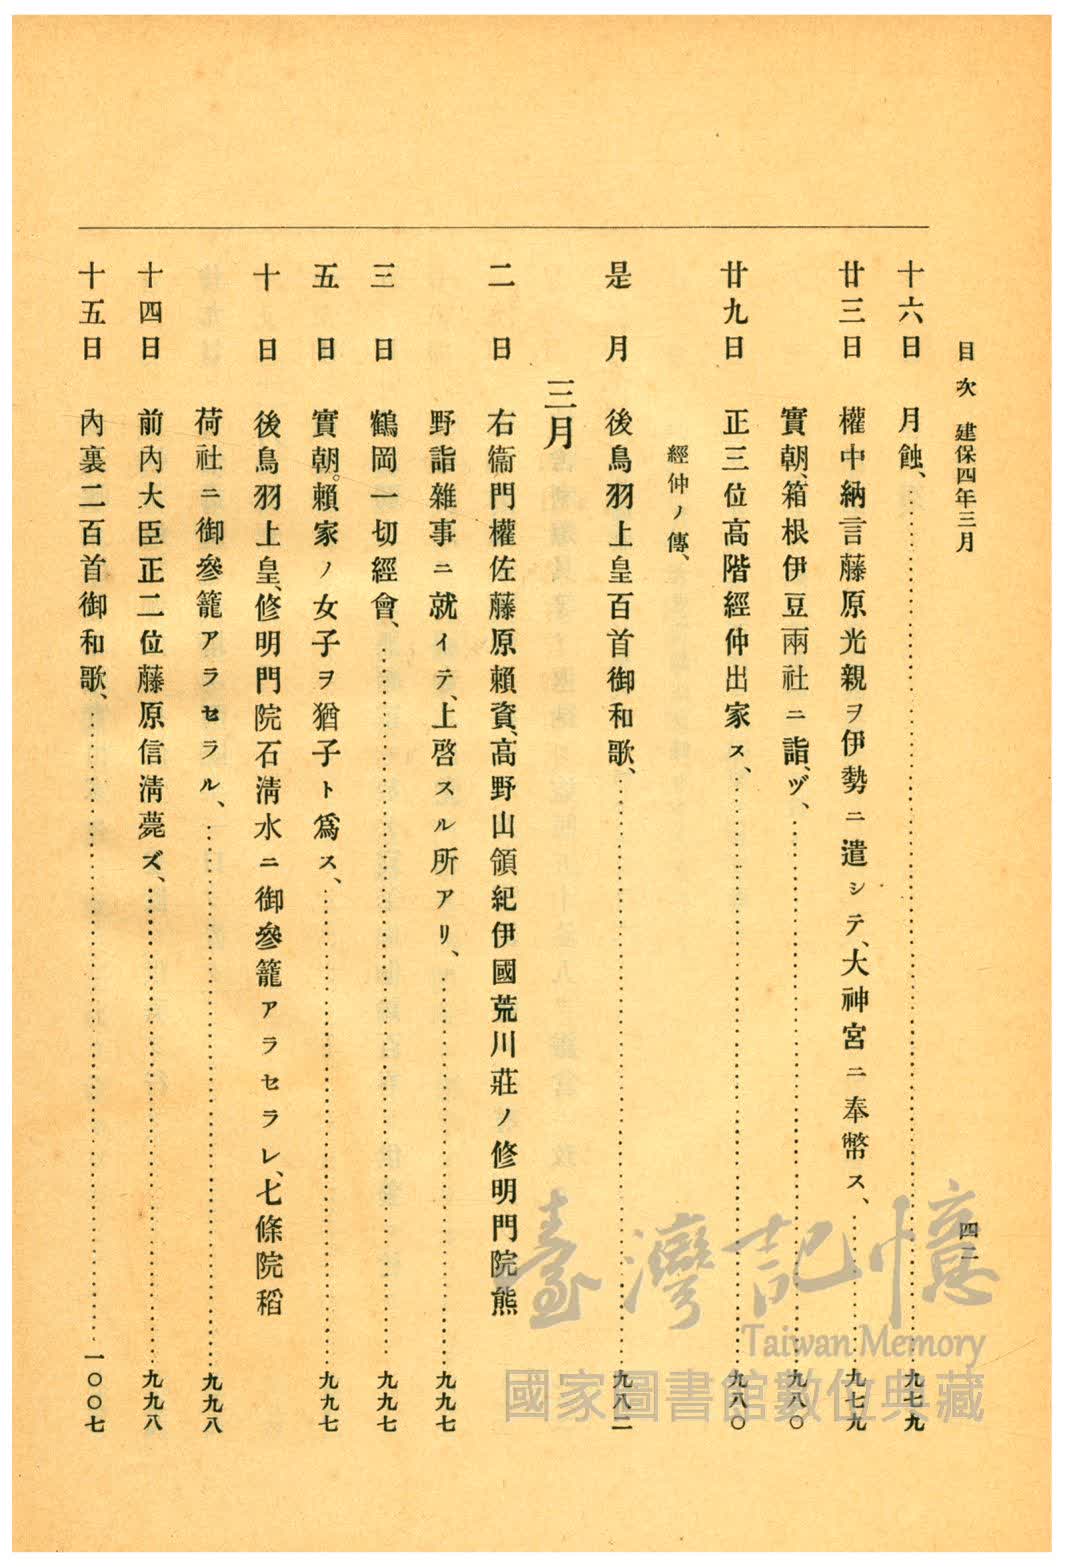 目次 建保四年三月 四二
十六日 月蝕、 九七九
廿三日 權中納言藤原光親ヲ伊勢ニ遣シテ、大神宮ニ奉幣ス、 九七九
實朝、箱根伊豆兩社ニ詣ヅ、 九八〇
廿九日 正三位高階經仲出家ス、 九八〇
經仲ノ傳、
是月 後鳥羽上皇百首御和歌、 九八二
三月
二日 右衞門權佐藤原賴資、高野山領紀伊國荒川莊ノ修明門院熊
野詣雜事ニ就イテ、上啓スル所アリ、 九九七
三日 鶴岡一切經會、 九九七
五日 實朝。賴家ノ女子ヲ猶子ト爲ス、 九九七
十日 後鳥羽上皇、修明門院石淸水ニ御參籠アラセラレ、七條院稻
荷社ニ御參籠アラセラル、 九九八
十四日 前內大臣正二位藤原信淸薨ズ、 九九八
十五日 內裏二百首御和歌、 一〇〇七
臺灣記憶
Taiwan Memory
國家圖書館數位典藏